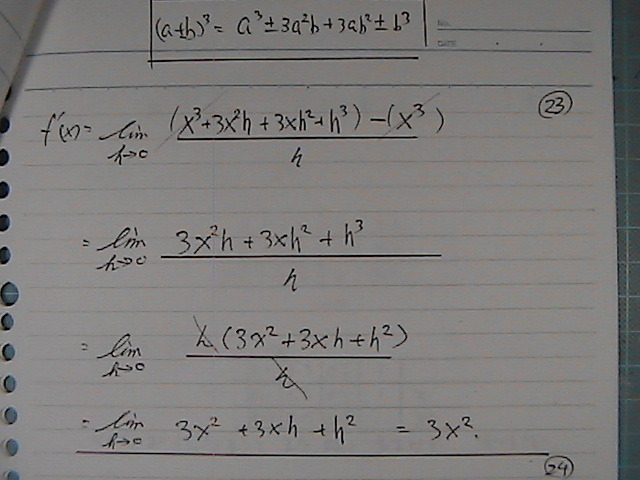 (a±b)³ = a³ ± 3a²b + 3ab² ± b³
No.
DATE
23
f'(x) = lim h→0 (x³+3x²h+3xh²+h³)-(x³) / h
= lim h→0 3x²h+3xh²+h³ / h
= lim h→0 h(3x²+3xh+h²) / h
= lim h→0 3x²+3xh+h² = 3x².
24